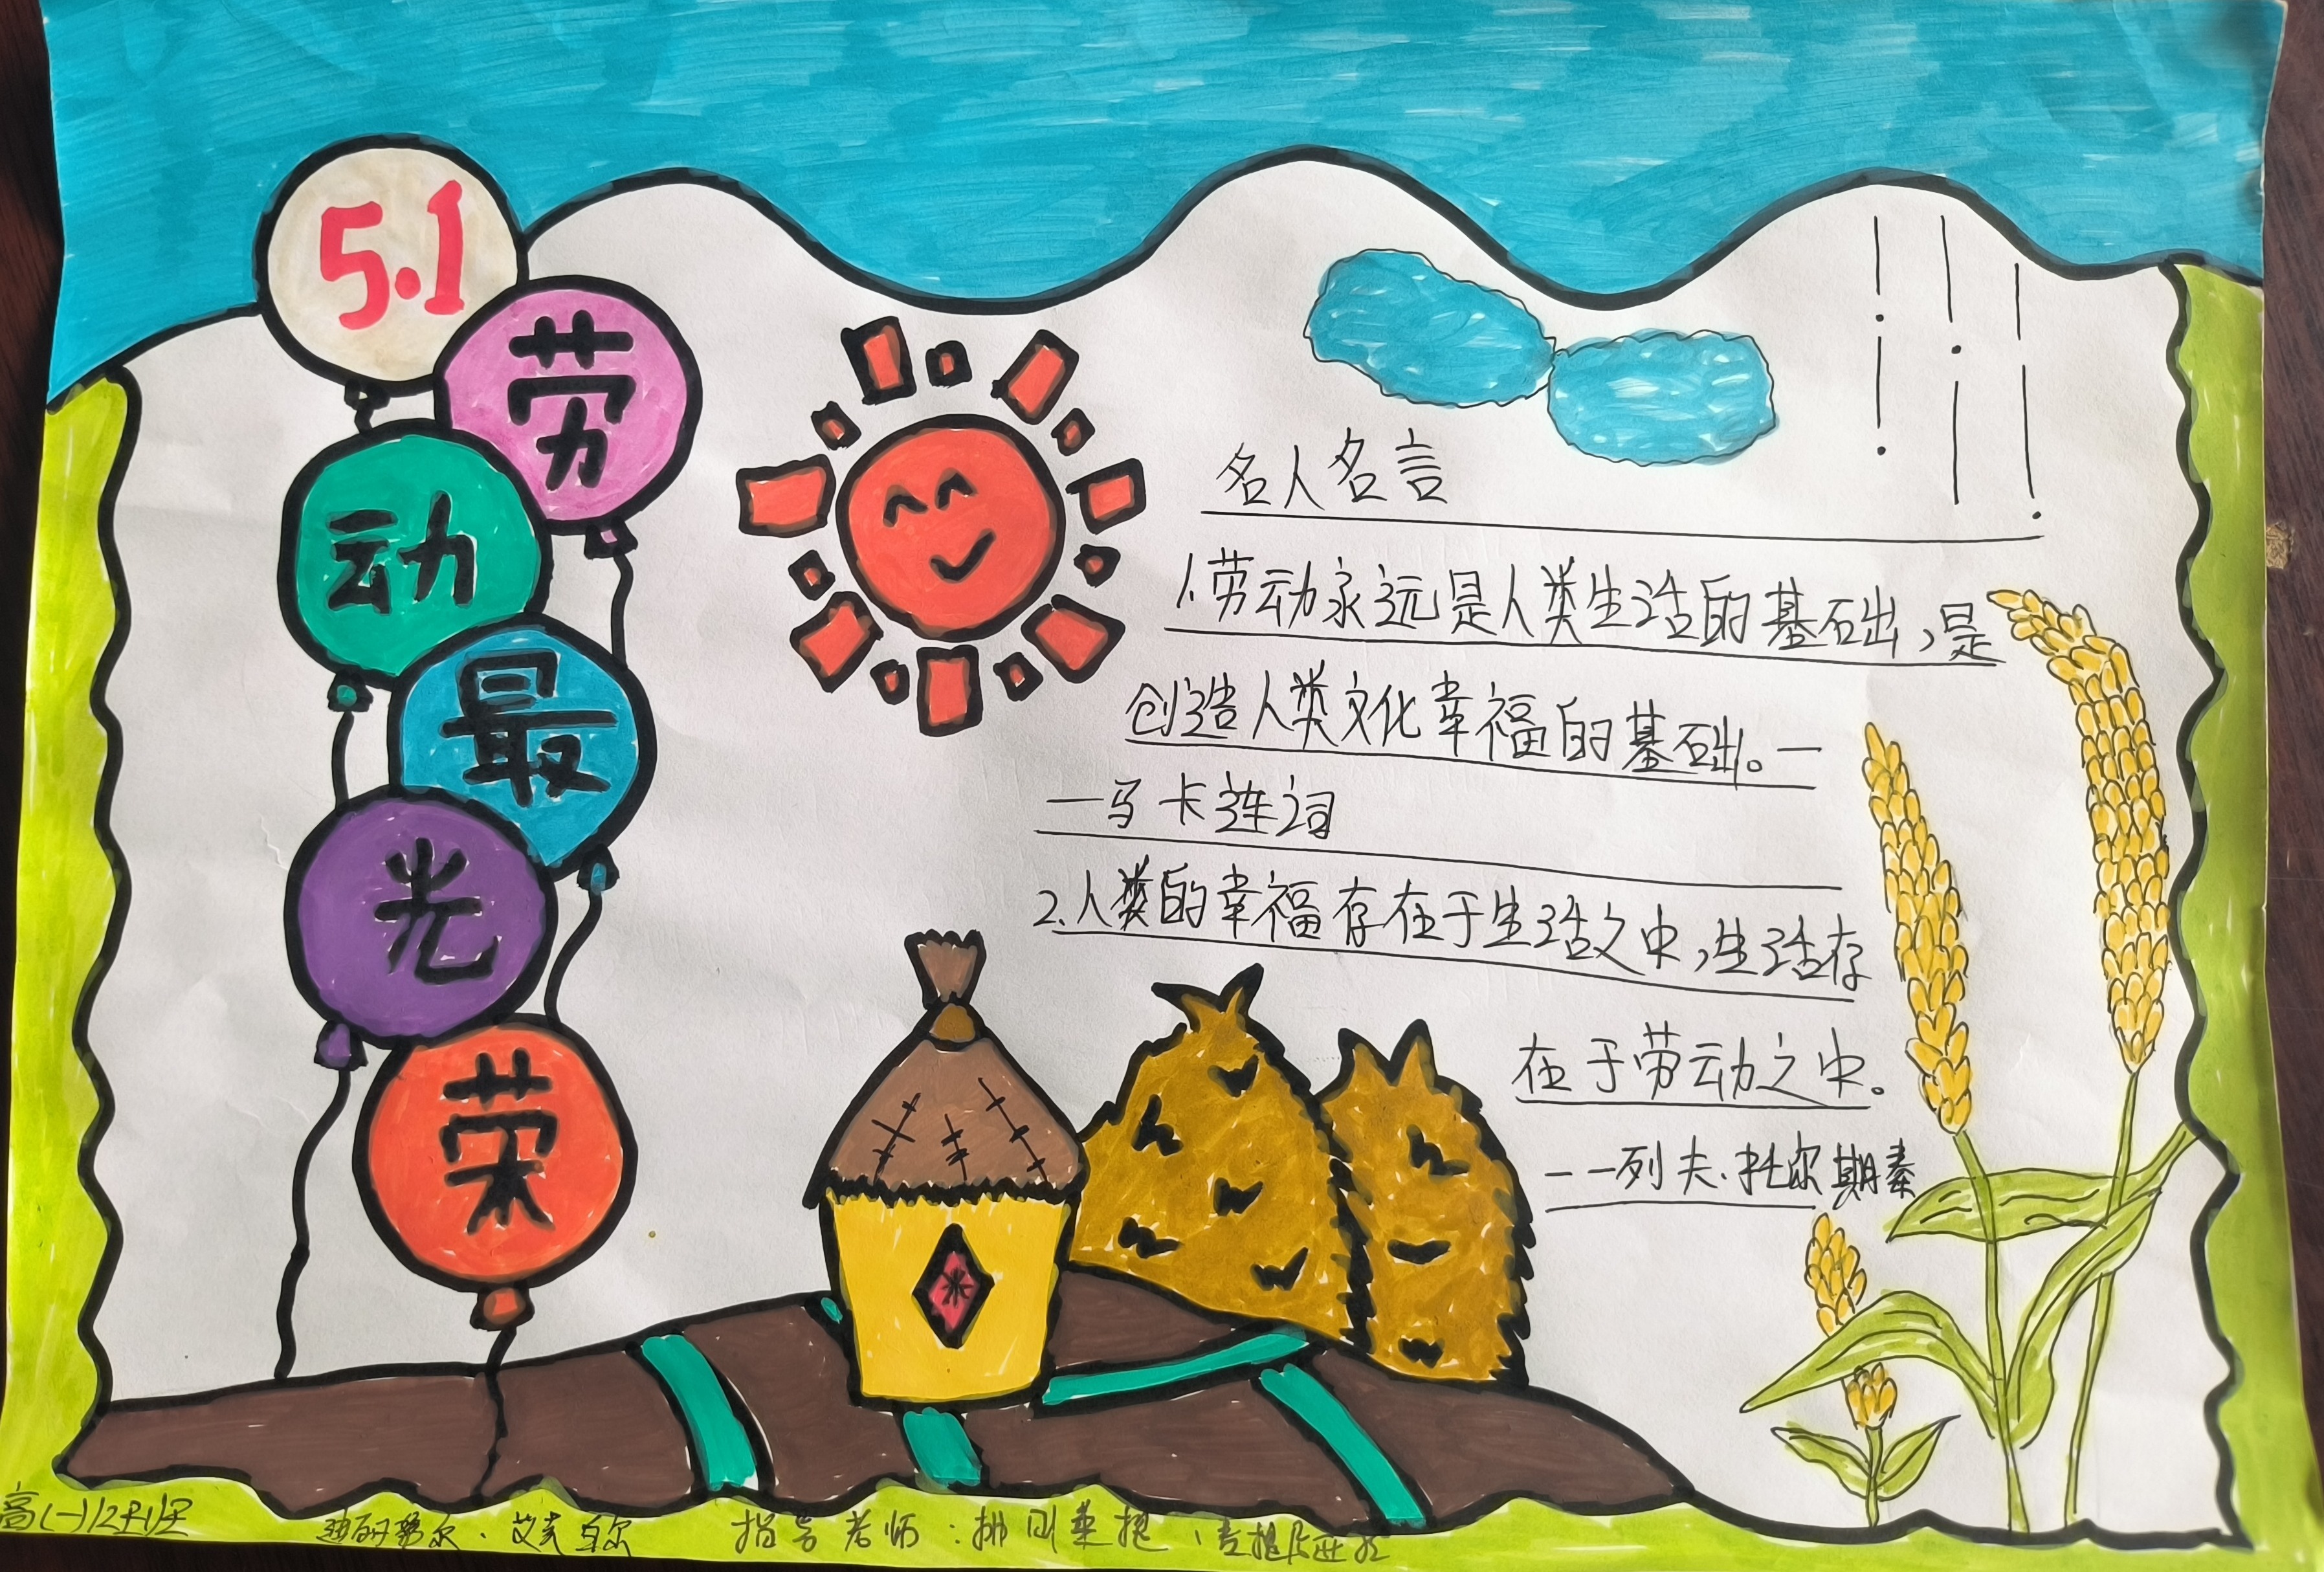 5.1
劳
动
最
光
荣
名人名言
1.劳动永远是人类生活的基础,是
创造人类文化幸福的基础。—
—马卡连词
2.人类的幸福存在于生活之中,生活存
在于劳动之中。
——列夫·托尔期秦
高(一)12班
迪丽努尔·艾克白尔
指导老师: